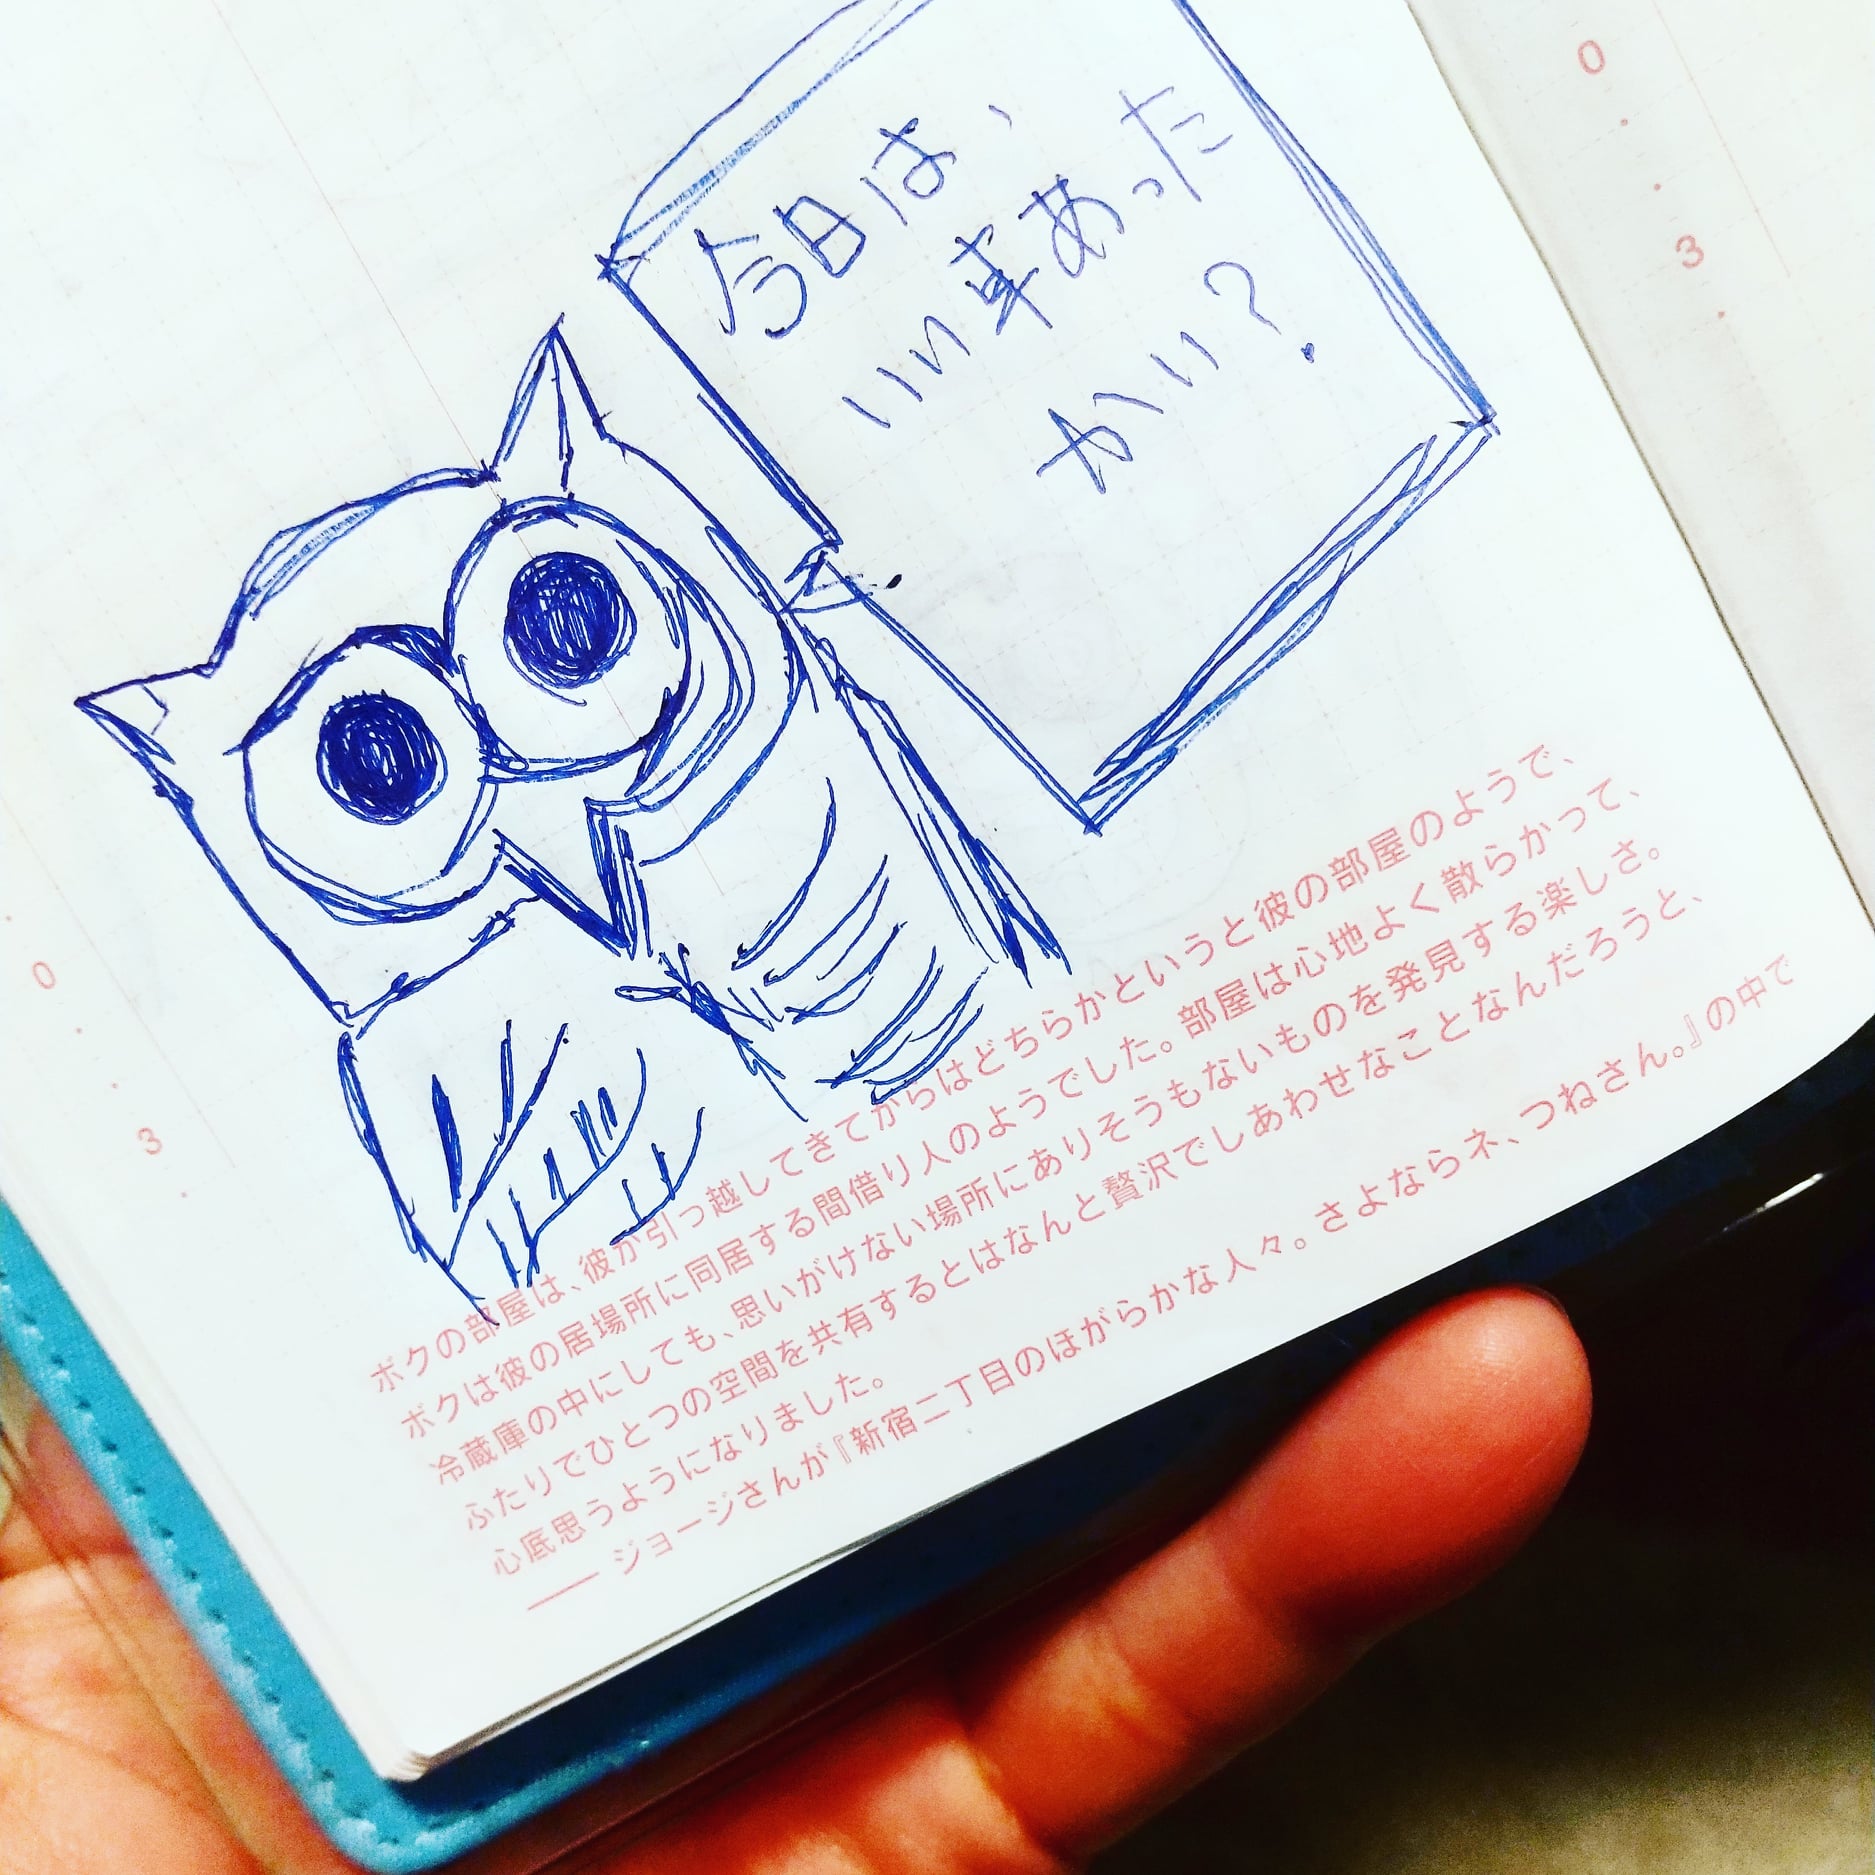 今日は、
いい事あった
かい?
0
3
0
3
ボクの部屋は、彼が引っ越してきてからはどちらかというと彼の部屋のようで、
ボクは彼の居場所に同居する間借り人のようでした。部屋は心地よく散らかって、
冷蔵庫の中にしても、思いがけない場所にありそうもないものを発見する楽しさ。
ふたりでひとつの空間を共有するとはなんと贅沢でしあわせなことなんだろうと、
心底思うようになりました。
—— ジョージさんが『新宿二丁目のほがらかな人々。さよならネ、つねさん。』の中で